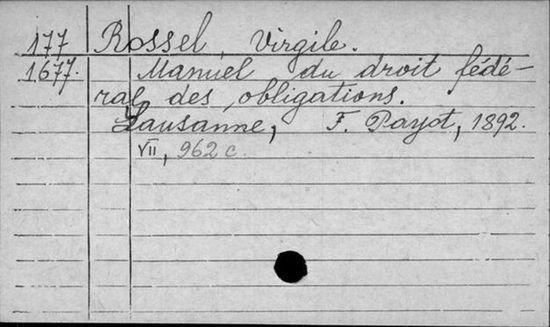 177 Rossel, Virgile.
1677. Manuel du droit fédé-
ral des obligations.
Lausanne, F. Payot, 1892.
VII, 962 c.